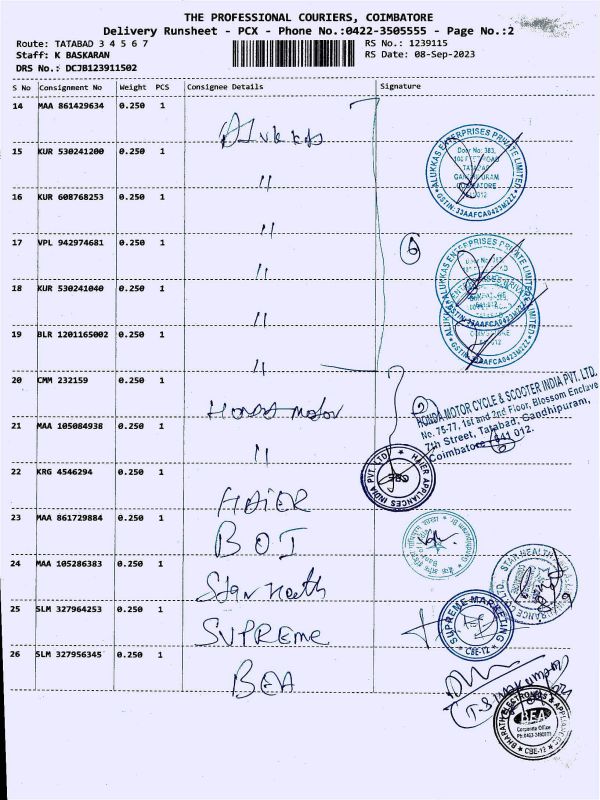 THE PROFESSIONAL COURIERS, COIMBATORE
Delivery Runsheet - PCX - Phone No.:0422-3505555 - Page No.:2
Route: TATABAD 3 4 5 6 7
RS No.: 1239115
Staff: K BASKARAN
RS Date: 08-Sep-2023
DRS No.: DCJB123911502
S No Consignment No Weight PCS Consignee Details Signature
14 MAA 861429634 0.250 1
Alukkas
15 KUR 530241200 0.250 1
"
16 KUR 608768253 0.250 1
"
17 VPL 942974681 0.250 1
"
18 KUR 530241040 0.250 1
"
19 BLR 1201165002 0.250 1
"
20 CMM 232159 0.250 1
Honda motor
21 MAA 105084938 0.250 1
"
22 KRG 4546294 0.250 1
HAIER
23 MAA 861729884 0.250 1
BOI
24 MAA 105286383 0.250 1
Star health
25 SLM 327964253 0.250 1
SUPREME
26 SLM 327956345 0.250 1
BEA
ALUKKAS ENTERPRISES PRIVATE LIMITED
Door No: 383,
COIMBATORE
6
HONDA MOTOR CYCLE & SCOOTER INDIA PVT. LTD.
No. 75-77, 1st and 2nd Floor, Blossom Enclave
7th Street, Tatabad, Gandhipuram,
Coimbatore 641 012.
2
HAIER APPLIANCES INDIA PVT. LTD
CBE
SUPREME MARKETING
CBE-12
BHARATH ELECTRONICS & APPLIANCES
BEA
Corporate Office
CBE-12